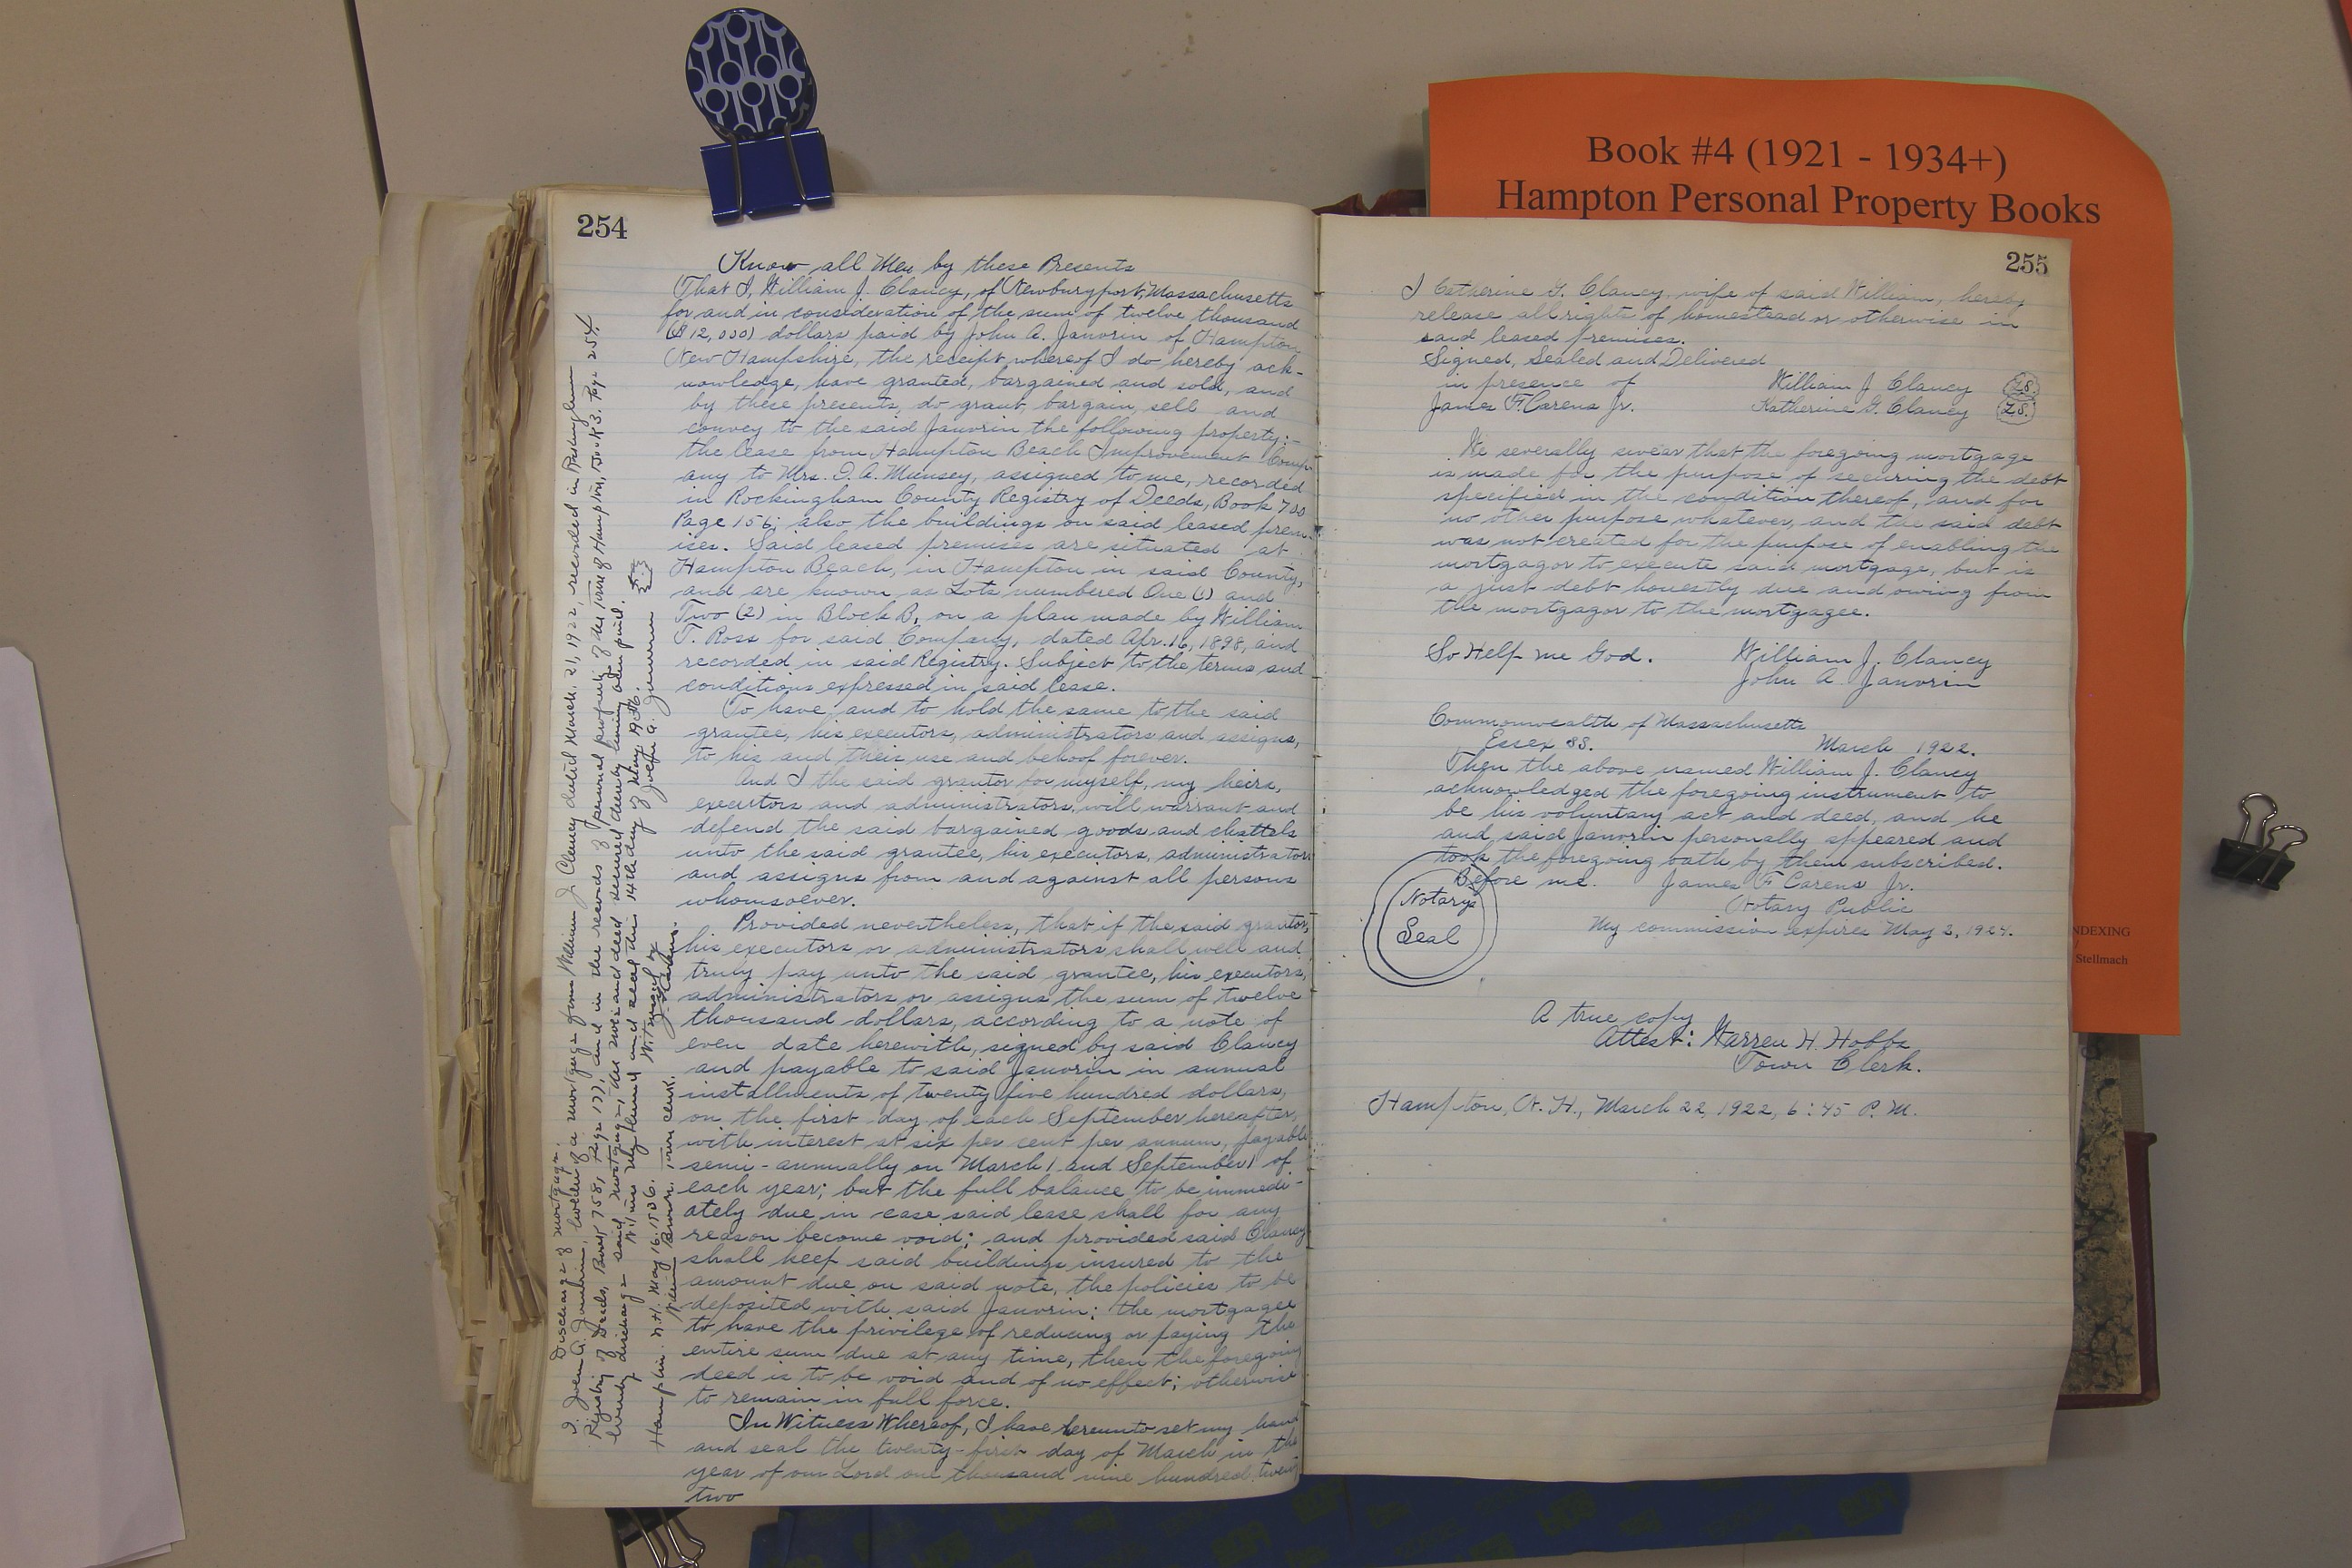 Book #4 (1921 - 1934+)
Hampton Personal Property Books
NDEXING
Stellmach
254
Know all Men by these Presents
That I, William J. Clancy, of Newburyport, Massachusetts
for and in consideration of the sum of twelve thousand
($12,000) dollars paid by John A. Janvrin of Hampton
New Hampshire, the receipt whereof I do hereby ack-
nowledge, have granted, bargained and sold, and
by these presents, do grant bargain, sell and
convey to the said Janvrin the following property:-
the lease from Hampton Beach Improvement Comp-
any to Mrs. I. A. Munsey, assigned to me, recorded
in Rockingham County Registry of Deeds, Book 700
Page 156; also the buildings on said leased prem-
ises. Said leased premises are situated at
Hampton Beach, in Hampton in said County,
and are known as Lots numbered One (1) and
Two (2) in Block B, on a plan made by William
T. Ross for said Company, dated Apr. 16, 1898, and
recorded in said Registry. Subject to the terms and
conditions expressed in said lease.
To have and to hold the same to the said
grantee, his executors, administrators and assigns,
to his and their use and behoof forever.
And I the said grantor for myself, my heirs,
executors and administrators, will warrant and
defend the said bargained goods and chattels
unto the said grantee, his executors, administrators
and assigns from and against all persons
whomsoever.
Provided nevertheless, that if the said grantor,
his executors or administrators shall well and
truly pay unto the said grantee, his executors,
administrators or assigns the sum of twelve
thousand dollars, according to a note of
even date herewith, signed by said Clancy
and payable to said Janvrin in annual
installments of twenty five hundred dollars,
on the first day of each September hereafter,
with interest at six per cent per annum, payable
semi-annually on March 1 and September 1 of
each year; but the full balance to be immedi-
ately due in case said lease shall for any
reason become void; and provided said Clancy
shall keep said buildings insured to the
amount due on said note, the policies to be
deposited with said Janvrin; the mortgagee
to have the privilege of reducing or paying the
entire sum due at any time, then the foregoing
deed is to be void and of no effect; otherwise
to remain in full force.
In Witness Whereof, I have hereunto set my hand
and seal the twenty-first day of March in the
year of our Lord one thousand nine hundred twenty
two
Discharge of mortgage.
I, John A. Janvrin, holder of a mortgage from William J. Clancy dated March 21, 1922, recorded in Rockingham
Registry of Deeds, Book 758, Page 177, and in the records of personal property of the town of Hampton, Book 3. Page 254.
hereby discharge said mortgage, the
Witness my hand and seal this 14th day of May 1936.
Witness
Hampton. N.H. May 16. 1936.
Town Clerk.
255
I Catherine G. Clancy, wife of said William, hereby
release all rights of homestead or otherwise in
said leased premises.
Signed, Sealed and Delivered
in presence of William J Clancy L.S.
James F. Carens Jr. Katherine G. Clancy L.S.
We severally swear that the foregoing mortgage
is made for the purpose of securing the debt
specified in the condition thereof, and for
no other purpose whatever, and the said debt
was not created for the purpose of enabling the
mortgagor to execute said mortgage, but is
a just debt honestly due and owing from
the mortgagor to the mortgagee.
So Help me God. William J. Clancy
John A. Janvrin
Commonwealth of Massachusetts
Essex SS. March 1922.
Then the above named William J. Clancy
acknowledged the foregoing instrument to
be his voluntary act and deed, and he
and said Janvrin personally appeared and
took the foregoing oath by them subscribed.
Before me. James F Carens Jr.
Notary Public
Notary
Seal
My commission expires May 2, 1924.
A true copy
Attest: Warren H. Hobbs
Town Clerk.
Hampton, N. H., March 22, 1922, 6:45 P. M.